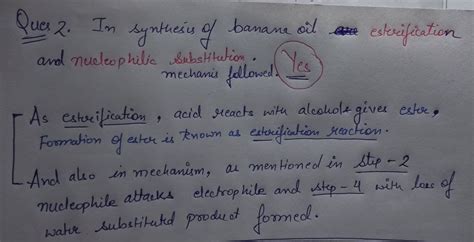 Ques 2. In synthesis of banana oil esterification
and nucleophilic substitution.
mechanis followed. Yes
As esterification, acid reacts with alcohols gives ester.
Formation of ester is known as esterification reaction.
And also in mechanism, as mentioned in step-2
nucleophile attacks electrophile and step-4 with loss of
water substituted product formed.